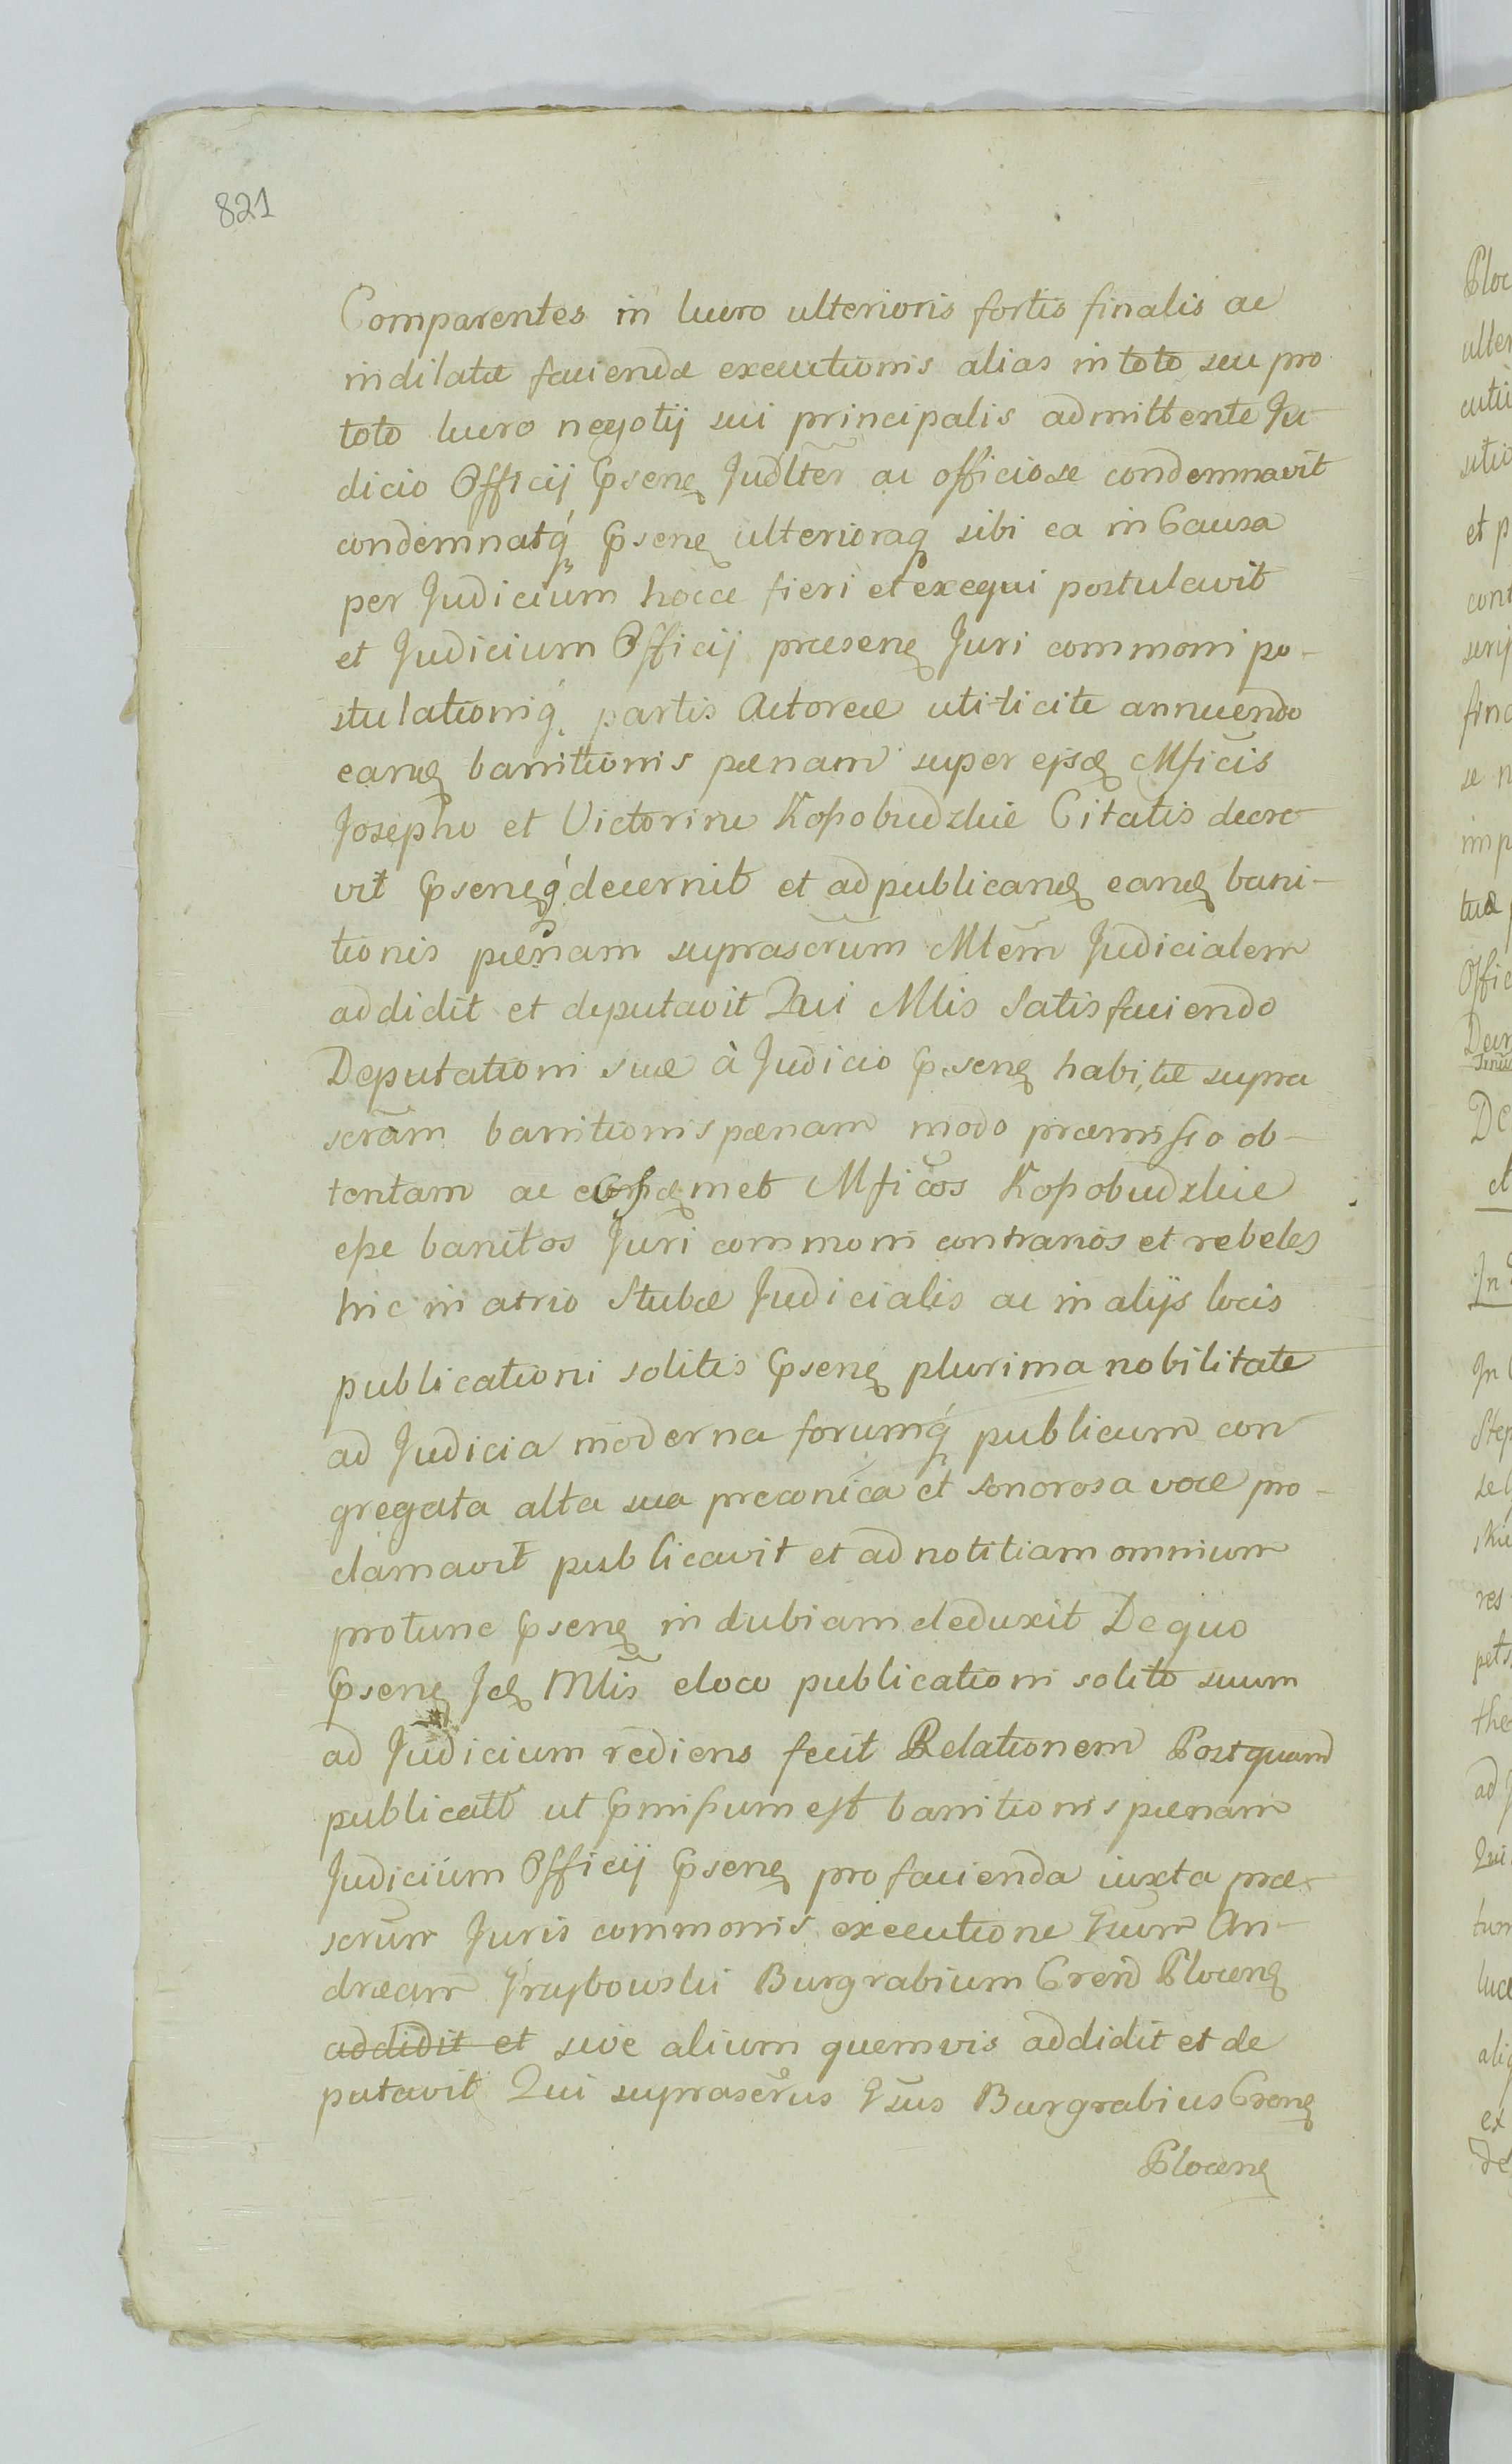 821
Comparentes in lucro ulterioris fortis finalis ac
indilatæ faciendæ executionis alias in toto seu pro
toto lucro negotij sui principalis admittente Ju-
dicio Officij Psenꝫ Judlter ac officiose condemnavit
condemnatq́ Psenꝫ ulterioraq sibi ea in Causa
per Judicium hocce fieri et exequi postulavit
et Judicium Officij præsenꝫ Juri commoni po-
stulationiq́ partis Actoreæ uti licite annuendo
eandꝫ banitionis pænam super ejsdꝫ Mficis
Josepho et Victorino Kossobudzkie Citatis decre-
vit Psenꝫq́ decernit et ad publicandꝫ eandꝫ bani-
tionis pænam suprascrum Mlem Judicialem
addidit et deputavit Qui Mlis Satisfaciendo
Deputationi suæ à Judicio Psenꝫ habitæ supra
scram banitionis pænam modo præmisso ob-
tentam ac met Mficos Kossobudzkie
esse banitos Juri commoni contrarios et rebeles
hic in atrio Stubæ Judicialis ac in alijs locis
publicationi solitis Psenꝫ plurima nobilitate
ad Judicia moderna forumq́ publicum con
gregata alta sua preconica et sonorosa voce pro-
clamavit publicavit et ad notitiam omnium
protunc Psenꝫ indubiam deduxit De quo
Psenꝫ Jdꝫ Mlis eloco publicationi solito suum
ad Judicium rediens fecit Relationem Postquam
publicatt ut Pmissum est banitionis pænam
Judicium Officij Psenꝫ pro facienda iuxta præ-
scrum Juris commonis executione Gsum An-
dream Grzybowski Burgrabium Cren Plocenꝫ
addidit et sive alium quemvis addidit et de
putavit Qui suprascrus Gsus Burgrabius Crenꝫ
Plocenꝫ